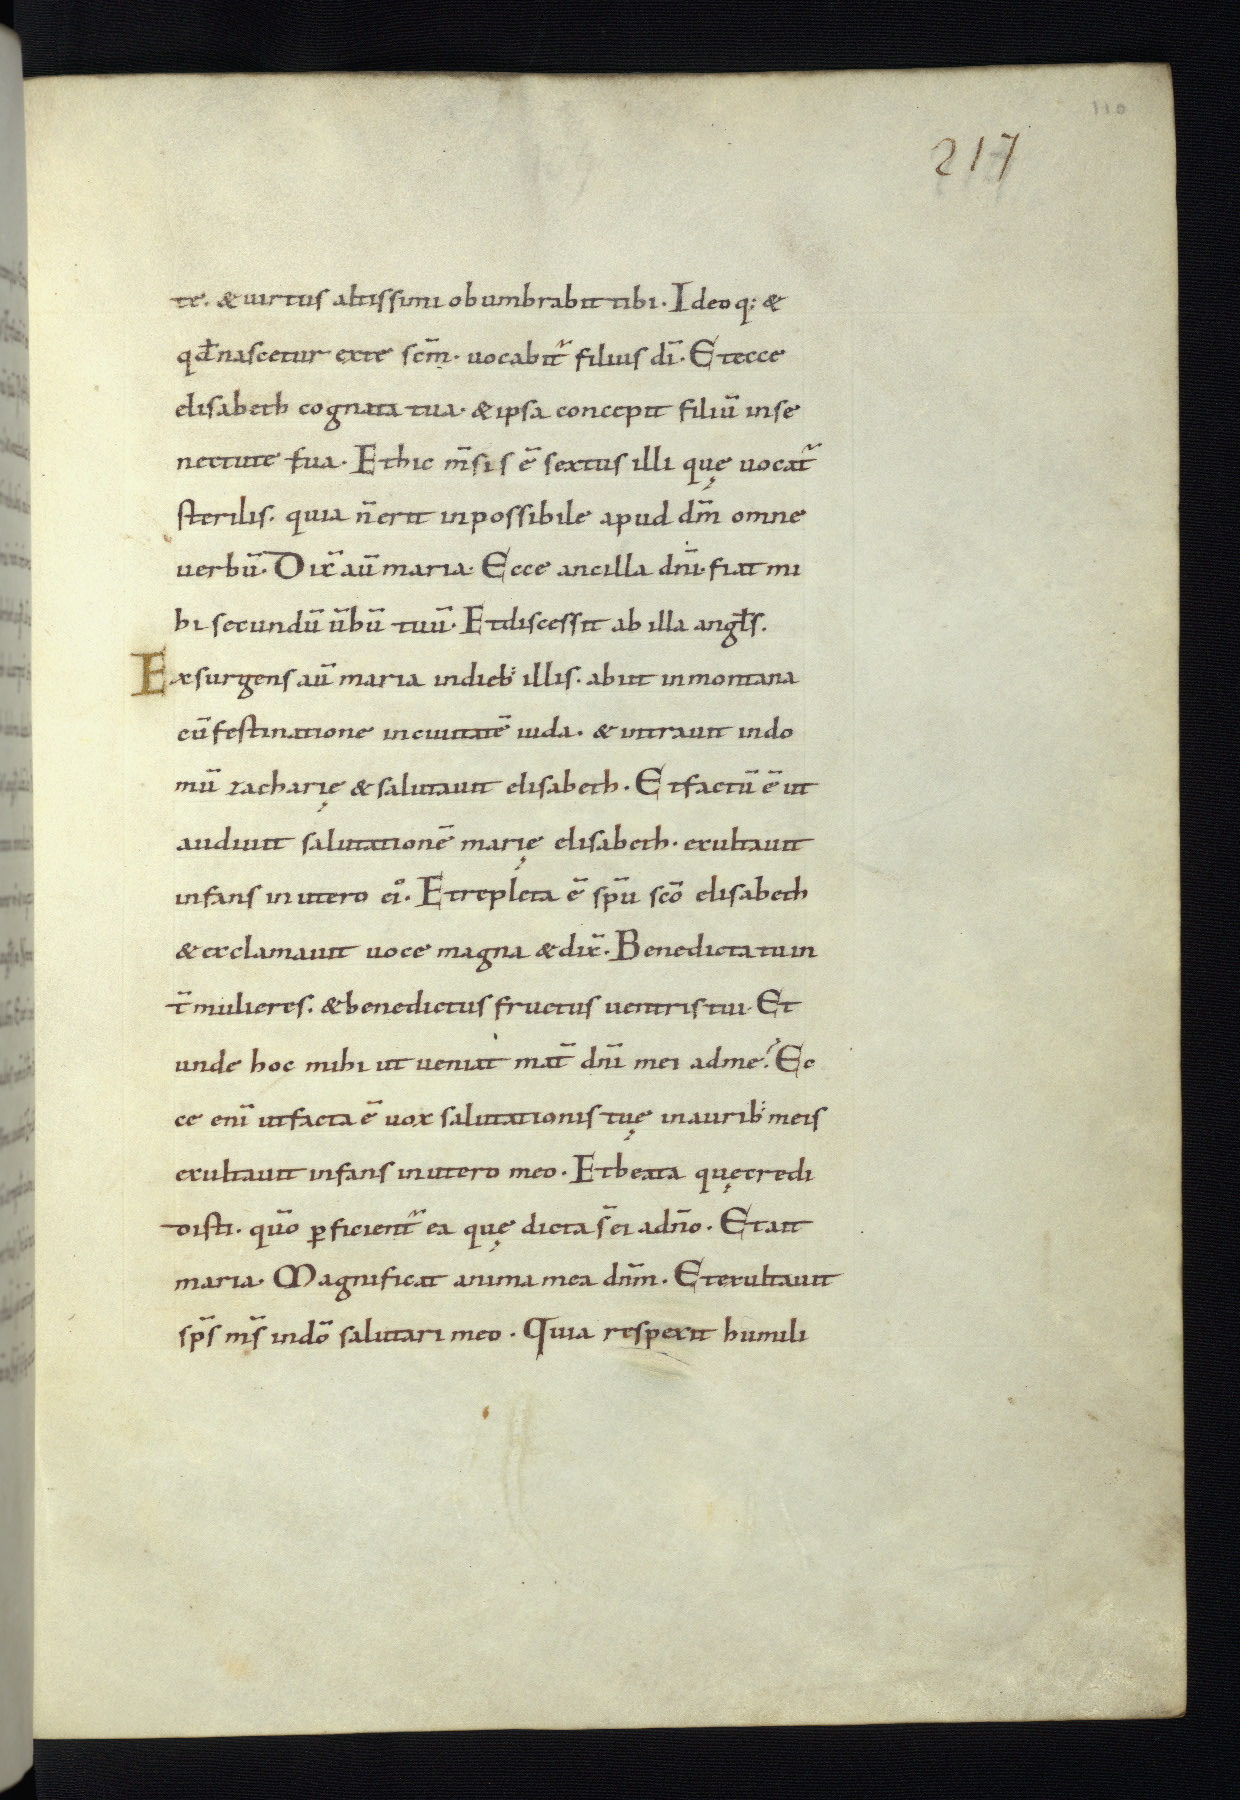 110
217
te. & uirtus altissimi obumbrabit tibi. Ideoq; &
qđ nascetur ex te scm̄. uocabit᷑ filius dī. Et ecce
elisabeth cognata tua. & ipsa concepit filiū in se
nectute sua. Et hic m̄sis ē sextus illi quę uocat᷑
sterilis. quia n̄ erit inpossibile apud dm̄ omne
uerbū. Dix̄ aū maria. Ecce ancilla dnī. fiat mi
hi secundū ūbū tuū. Et discessit ab illa angłs.
Exsurgens aū maria in dieb; illis. abiit in montana
cū festinatione in ciuitatē iuda. & intrauit in do
mū zacharię & salutauit elisabeth. Et factū ē ut
audiuit salutationē marię elisabeth. exultauit
infans in utero ei᷒. Et repleta ē sp̄u scō elisabeth
& exclamauit uoce magna & dix̄. Benedicta tu in
t̄ mulieres. & benedictus fructus uentris tui. Et
unde hoc mihi ut ueniat mat̄ dnī mei ad me? Ec
ce enī ut facta ē uox salutationis tuę in aurib; meis
exultauit infans in utero meo. Et beata quę credi
disti. qūo ꝑficient᷑ ea quę dicta s̄ ei a dn̄o. Et ait
maria. Magnificat anima mea dnm̄. Et exultauit
sp̄s m̄s in dō salutari meo. Quia respexit humili